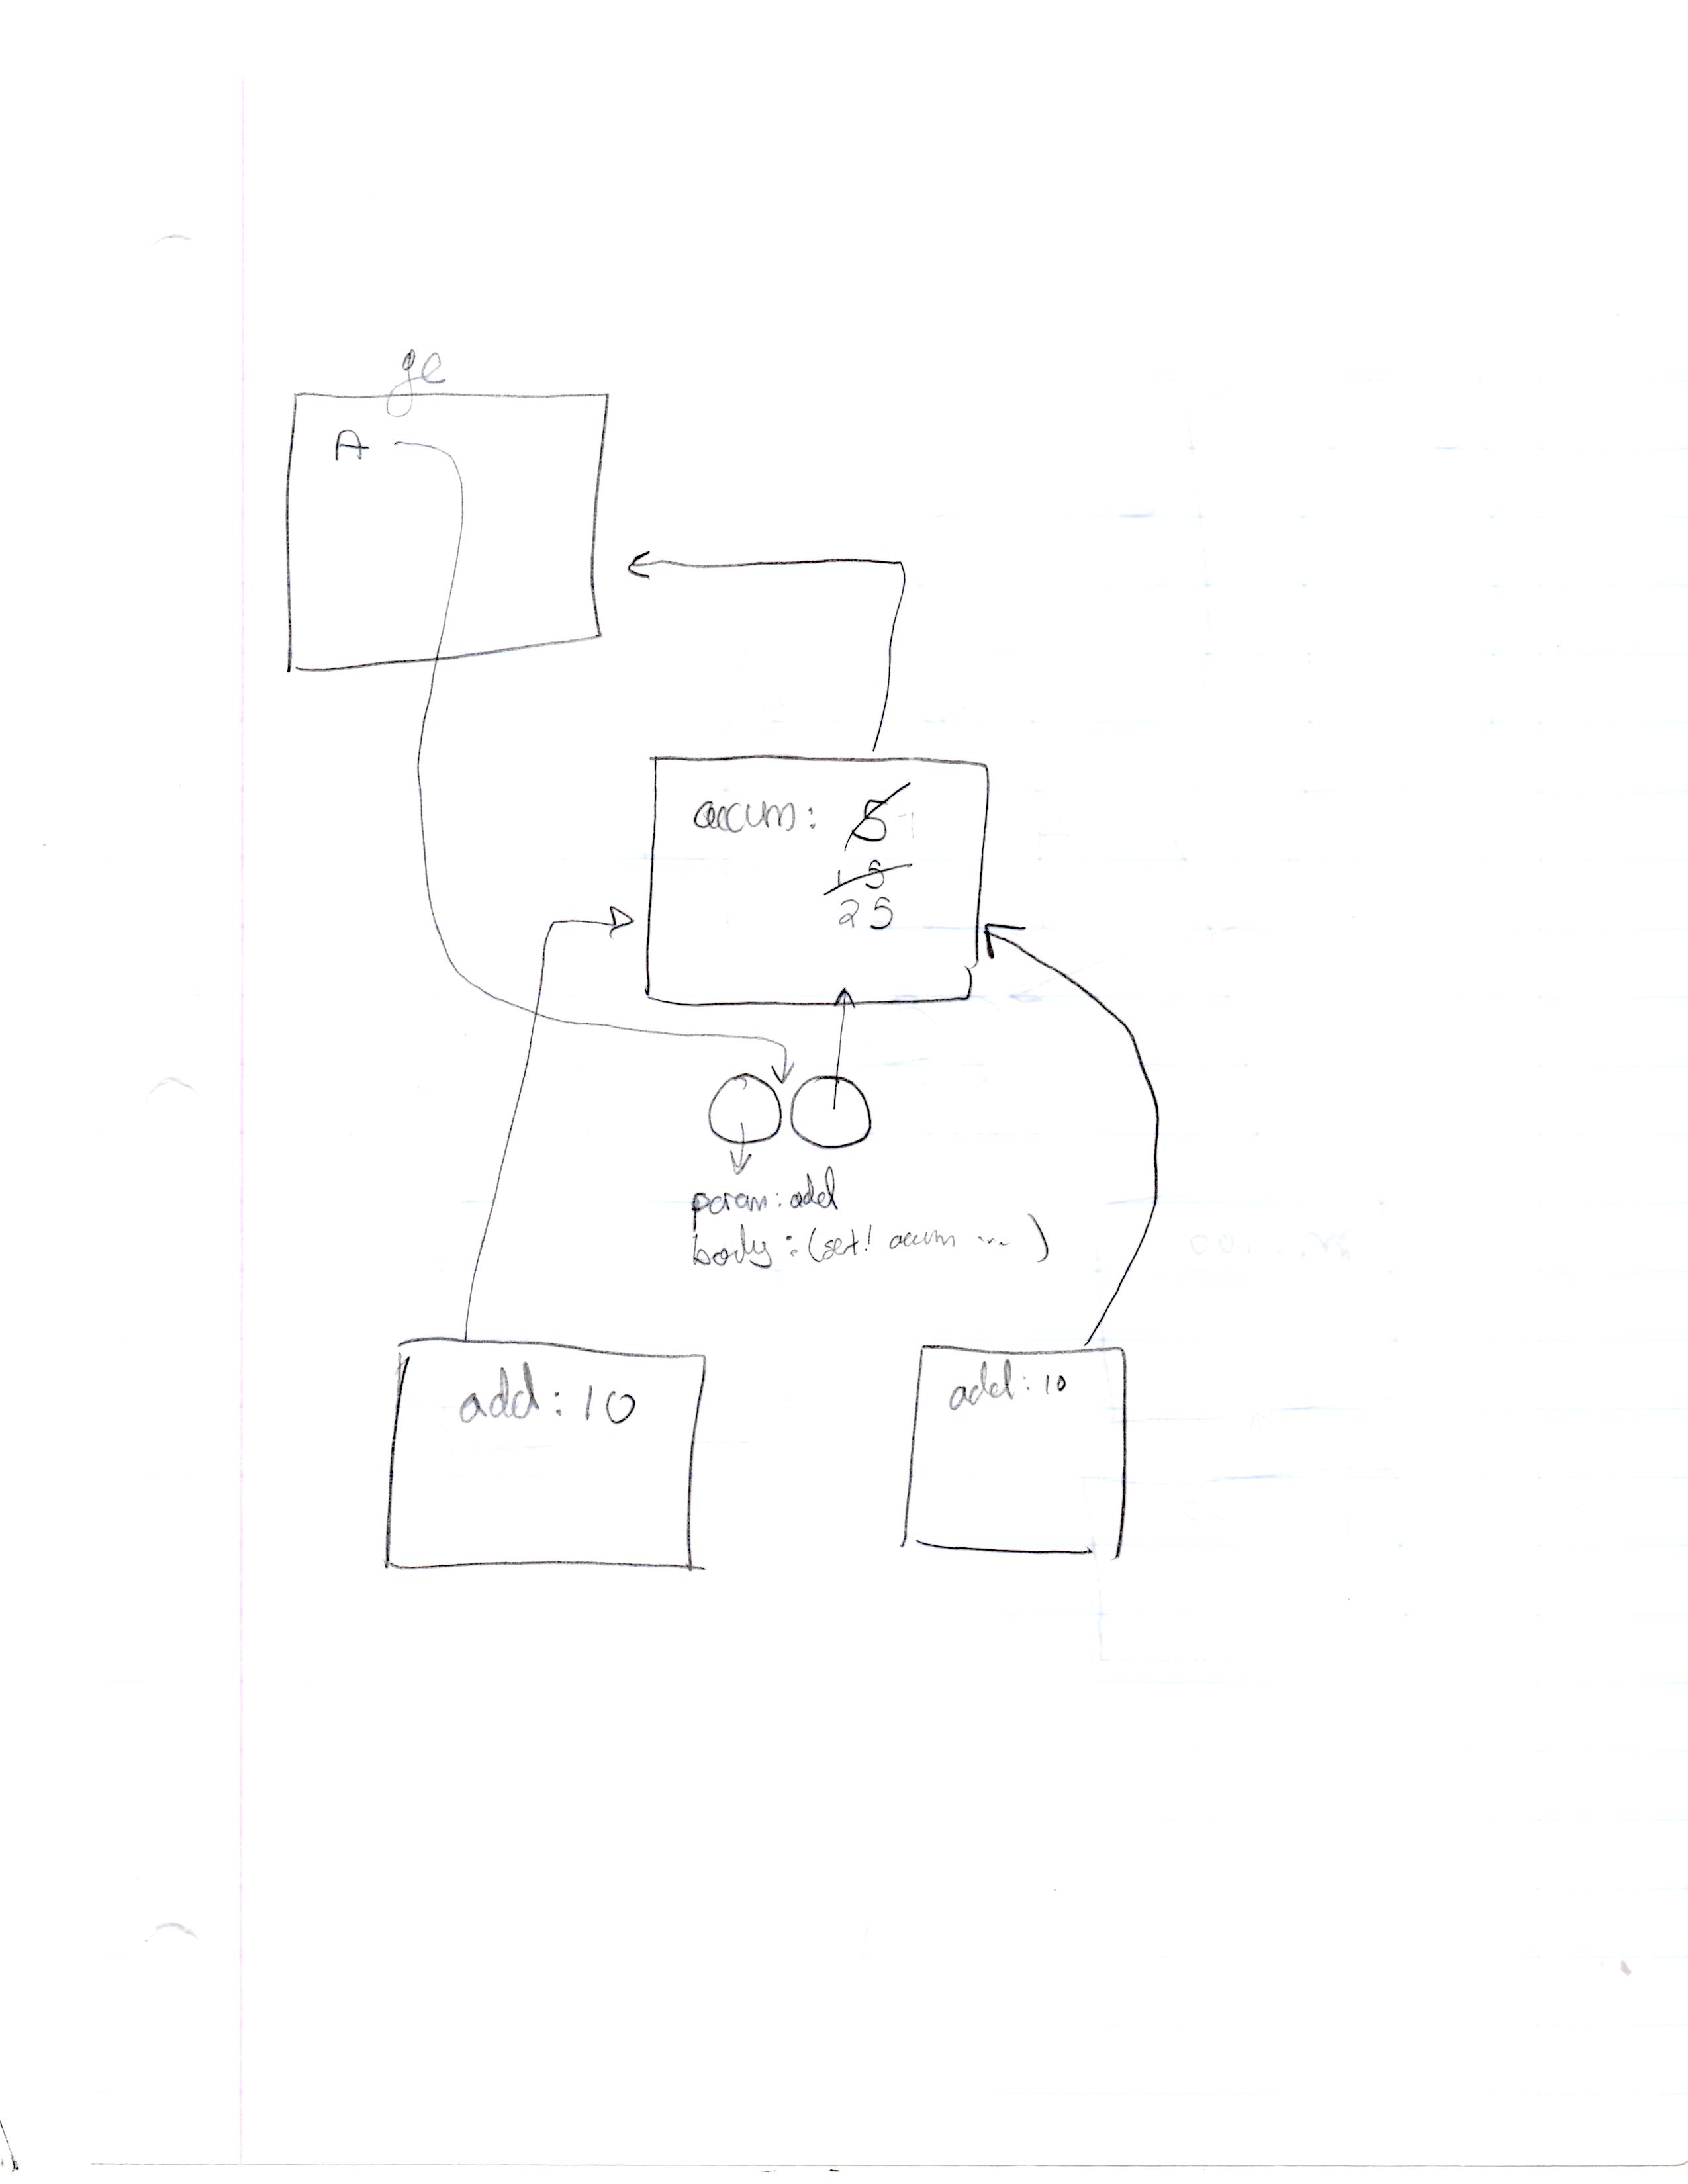 ge
A
accum: 5
15
25
param: add
body: (set! accum ...)
add: 10
add: 10